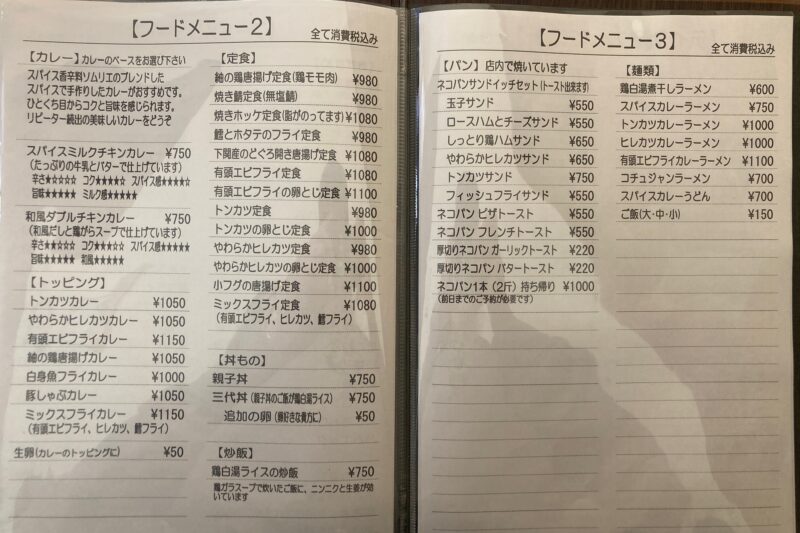 【フードメニュー2】
全て消費税込み
【カレー】カレーのベースをお選び下さい
スパイス香辛料ソムリエのブレンドした
スパイスで手作りしたカレーがおすすめです。
ひとくち目からコクと旨味を感じられます。
リピーター続出の美味しいカレーをどうぞ
スパイスミルクチキンカレー ¥750
(たっぷりの牛乳とバターで仕上げています)
辛さ★☆☆☆☆ コク★★★★☆ スパイス感★★★★☆
旨味★★★★★ ミルク感★★★★★
和風ダブルチキンカレー ¥750
(和風だしと鶏がらスープで仕上げています)
辛さ★★☆☆☆ コク★★★☆☆ スパイス感★★★★★
旨味★★★★★ 和風★★★★★
【トッピング】
トンカツカレー ¥1050
やわらかヒレカツカレー ¥1050
有頭エビフライカレー ¥1150
紬の鶏唐揚げカレー ¥1050
白身魚フライカレー ¥1000
豚しゃぶカレー ¥1050
ミックスフライカレー ¥1150
(有頭エビフライ、ヒレカツ、鱈フライ)
生卵(カレーのトッピングに) ¥50
【定食】
紬の鶏唐揚げ定食(鶏モモ肉) ¥980
焼き鯖定食(無塩鯖) ¥980
焼きホッケ定食(脂がのってます) ¥1080
鱈とホタテのフライ定食 ¥980
下関産のどぐろ開き唐揚げ定食 ¥1080
有頭エビフライ定食 ¥1080
有頭エビフライの卵とじ定食 ¥1100
トンカツ定食 ¥980
トンカツの卵とじ定食 ¥1000
やわらかヒレカツ定食 ¥980
やわらかヒレカツの卵とじ定食 ¥1000
小フグの唐揚げ定食 ¥1100
ミックスフライ定食 ¥1080
(有頭エビフライ、ヒレカツ、鱈フライ)
【丼もの】
親子丼 ¥750
三代丼(親子丼のご飯が鶏白湯ライス) ¥750
追加の卵(卵好きな貴方に) ¥50
【炒飯】
鶏白湯ライスの炒飯 ¥750
鶏ガラスープで炊いたご飯に、ニンニクと生姜が効
いています
【フードメニュー3】
全て消費税込み
【パン】店内で焼いています
ネコパンサンドイッチセット(トースト出来ます)
玉子サンド ¥550
ロースハムとチーズサンド ¥550
しっとり鶏ハムサンド ¥650
やわらかヒレカツサンド ¥650
トンカツサンド ¥750
フィッシュフライサンド ¥550
ネコパン ピザトースト ¥550
ネコパン フレンチトースト ¥550
厚切りネコパン ガーリックトースト ¥220
厚切りネコパン バタートースト ¥220
ネコパン1本(2斤)持ち帰り ¥1000
(前日までのご予約が必要です)
【麺類】
鶏白湯煮干しラーメン ¥600
スパイスカレーラーメン ¥750
トンカツカレーラーメン ¥1000
ヒレカツカレーラーメン ¥1000
有頭エビフライカレーラーメン ¥1100
コチュジャンラーメン ¥700
スパイスカレーうどん ¥700
ご飯(大・中・小) ¥150